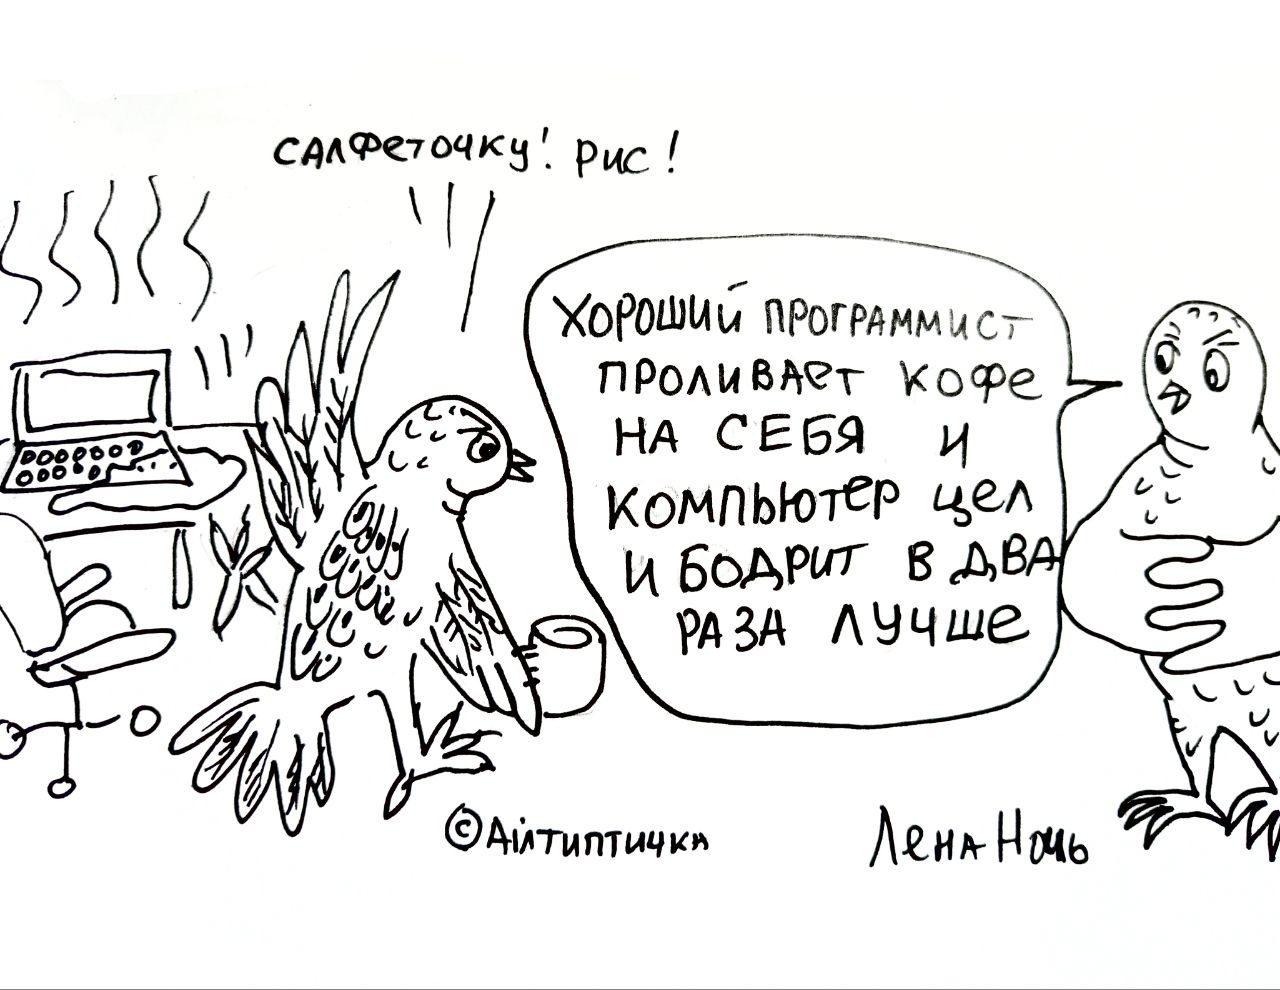 САЛФЕТОЧКУ! РИС!
ХОРОШИЙ ПРОГРАММИСТ
ПРОЛИВАЕТ КОФЕ
НА СЕБЯ И
КОМПЬЮТЕР ЦЕЛ
И БОДРИТ В ДВА
РАЗА ЛУЧШЕ
© Аiлтиптичка
Лена Ночь